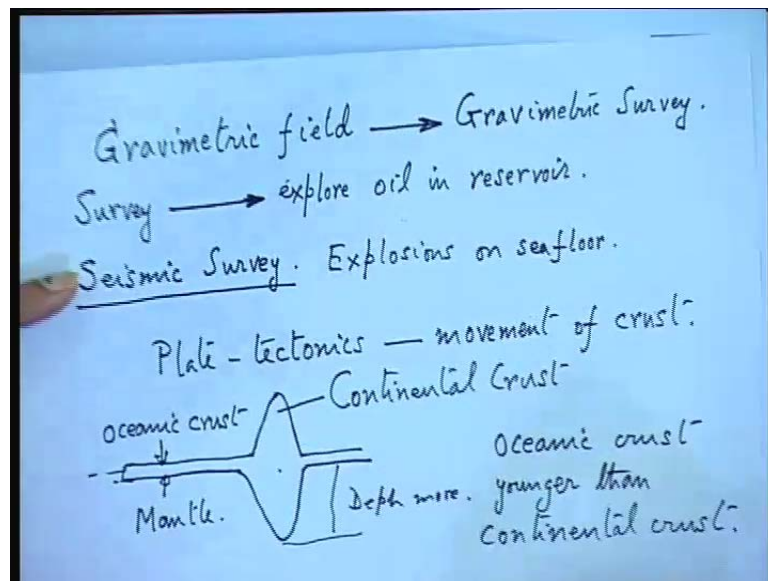 Gravimetric field → Gravimetric Survey.
Survey → explore oil in reservoir.
Seismic Survey. Explosions on seafloor.
Plate-tectonics — movement of crust.
Continental Crust
Oceanic crust
Mantle.
Deph more.
Oceanic crust
younger than
continental crust.